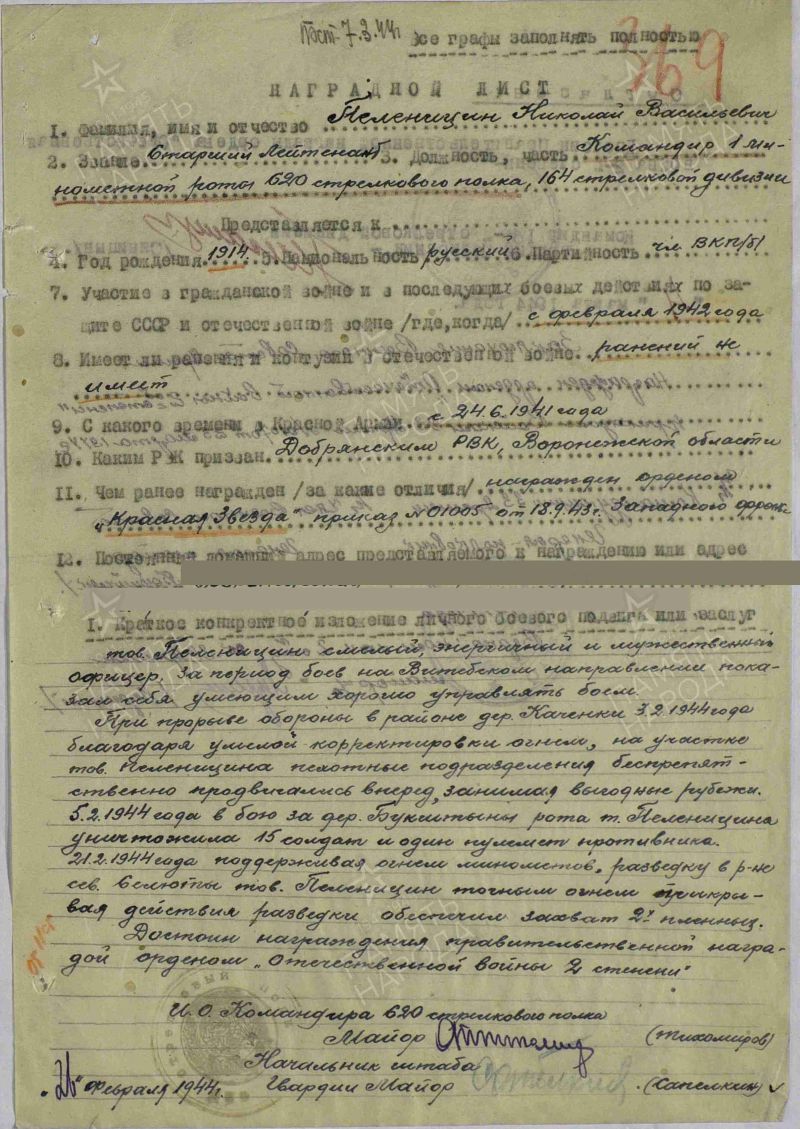 Пост-7.3.44г
Все графы заполнять полностью
369
НАГРАДНОЙ ЛИСТ
1. Фамилия, имя и отчество Пеленицин Николай Васильевич
2. Звание Старший Лейтенант 3. Должность, часть Командир 1 ми-
нометной роты 620 стрелкового полка, 164 стрелковой дивизии
Представляется к
4. Год рождения 1914 5. Национальность русский 6. Партийность чл ВКП/б/
7. Участие в гражданской войне и в последующих боевых действиях по за-
щите СССР и отечественной войне /где, когда/ с февраля 1942 года
8. Имеет ли ранения и контузии в отечественной войне ранений не
имеет
9. С какого времени в Красной Армии с 24.6.1941 года
10. Каким РВК призван Добрянским РВК, Воронежской области
11. Чем ранее награжден /за какие отличия/ награжден орденом
„Красная Звезда" приказ №01005 от 18.9.43г. Западного фронт
12. Постоянный домашний адрес представляемого к награждению или адрес
1. Краткое конкретное изложение личного боевого подвига или заслуг
тов. Пеленицин смелый, энергичный и мужественный
офицер. За период боев на Витебском направлении пока-
зал себя умеющим хорошо управлять боем.
При прорыве обороны в районе дер. Каченки 3.2.1944 года
благодаря умелой корректировки огнем, на участке
тов. Пеленицина пехотные подразделения беспрепят-
ственно продвигались вперед, занимая выгодные рубежи.
5.2.1944 года в бою за дер. Букштыны рота т. Пеленицина
уничтожила 15 солдат и один пулемет противника.
21.2.1944 года поддерживая огнем минометов, разведку в р-не
сев. Белюты тов. Пеленицин точным огнем прикры-
вая действия разведки обеспечил захват 2х пленных.
Достоин награждения правительственной награ-
дой орденом „Отечественной войны 2 степени"
И.О. Командира 620 стрелкового полка
Майор (Тихомиров)
Начальник штаба
„26" февраля 1944г. Гвардии Майор (Сапелкин)